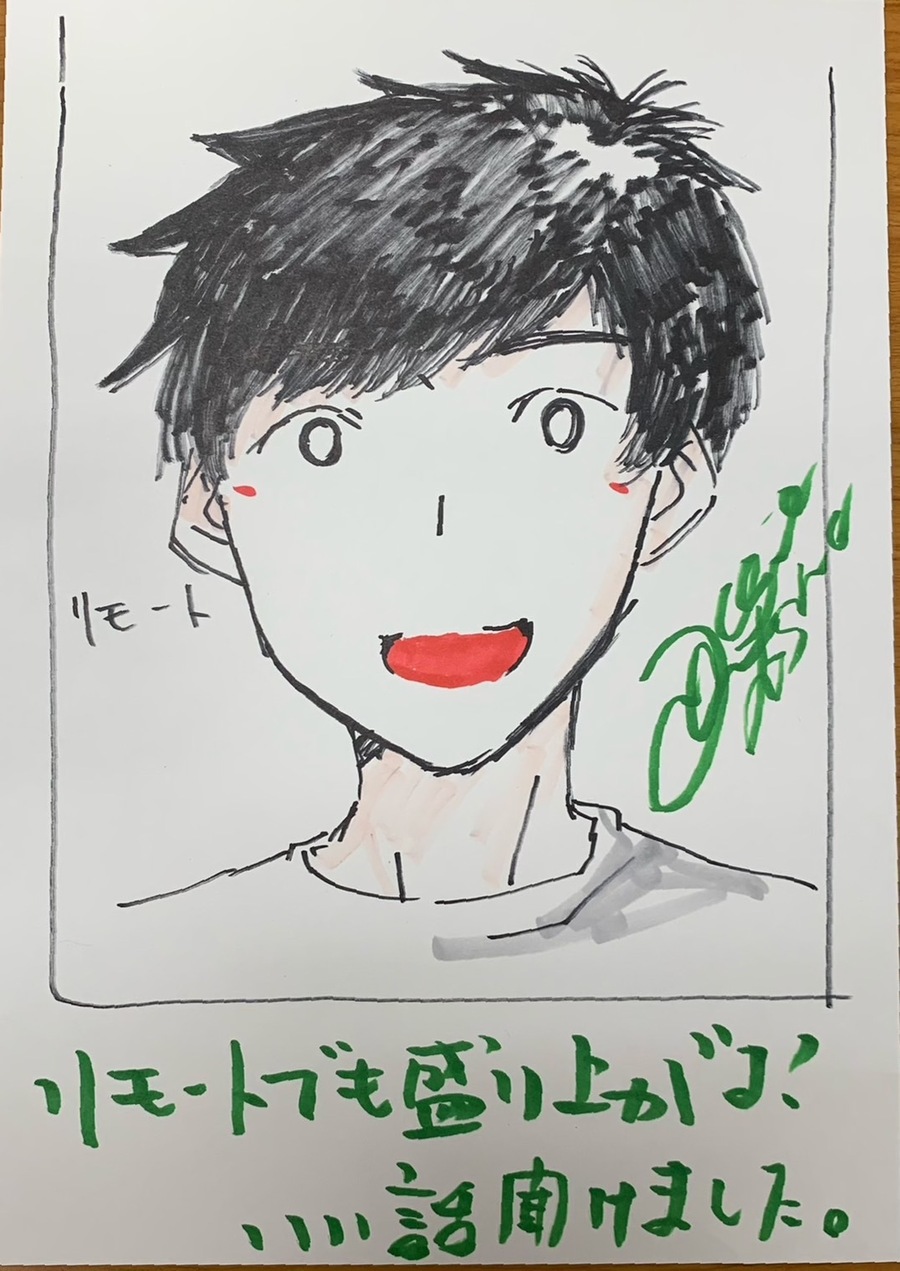 リモート
リモートでも盛り上がる!
いい話聞けました。